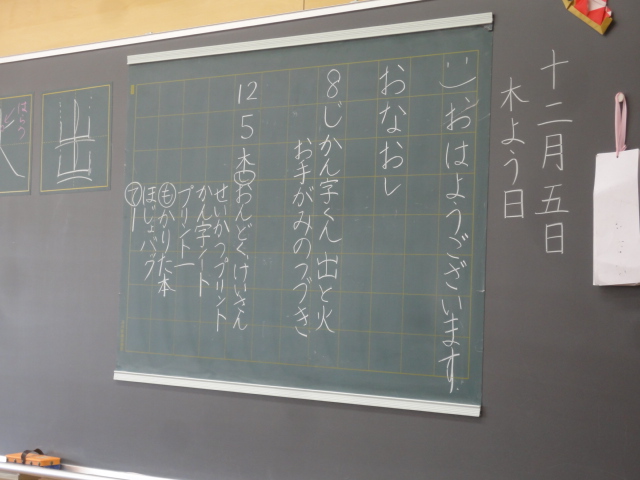 十二月五日
木よう日
:)おはようございます
おなおし
8じかん字くん 出と火
お手がみのつづき
12 5 木 おんどくけいさん
せいかつプリント
かん字ノート
プリント一
もかりた本
ほじょバッグ
て一
出
火
はらう